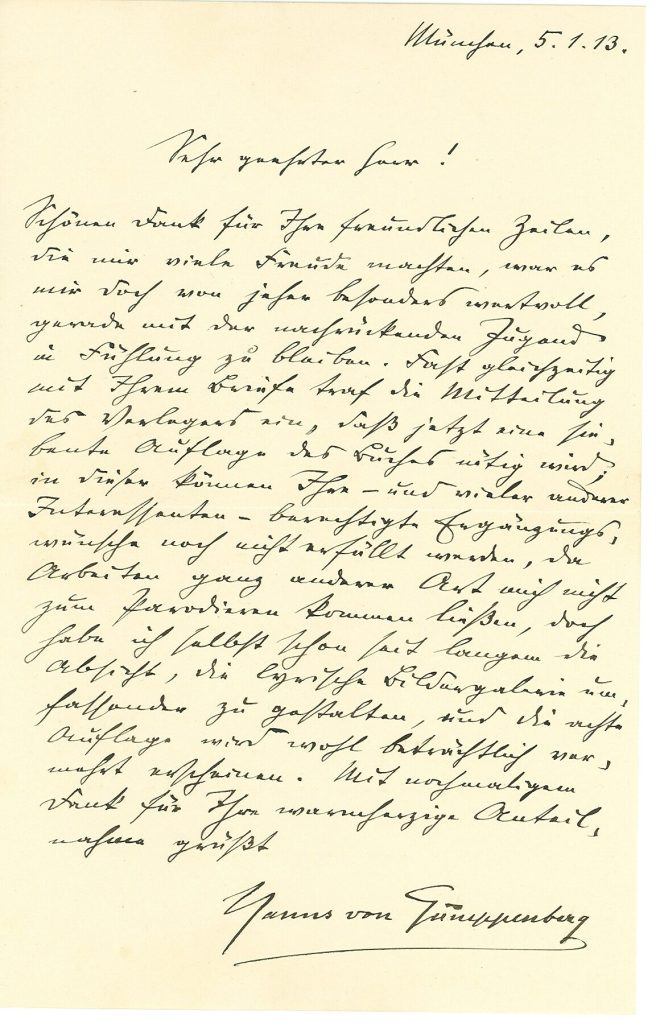 München, 5.1.13.
Sehr geehrter Herr!
Schönen Dank für Ihre freundlichen Zeilen,
die mir viele Freude machten, war es
mir doch von jeher besonders wertvoll,
gerade mit der nachrückenden Jugend
in Fühlung zu bleiben. Fast gleichzeitig
mit Ihrem Briefe traf die Mitteilung
des Verlegers ein, daß jetzt eine sie-
bente Auflage des Buches nötig wird;
in dieser können Ihre – und vieler anderer
Interessenten – berechtigte Ergänzungs-
wünsche noch nicht erfüllt werden, da
Arbeiten ganz anderer Art mich nicht
zum Parodieren kommen ließen, doch
habe ich selbst schon seit langem die
Absicht, die lyrische Bildergalerie um-
fassender zu gestalten, und die achte
Auflage wird wohl beträchtlich ver-
mehrt erscheinen. Mit nochmaligem
Dank für Ihre warmherzige Anteil-
nahme grüßt
Hanns von Gumppenberg